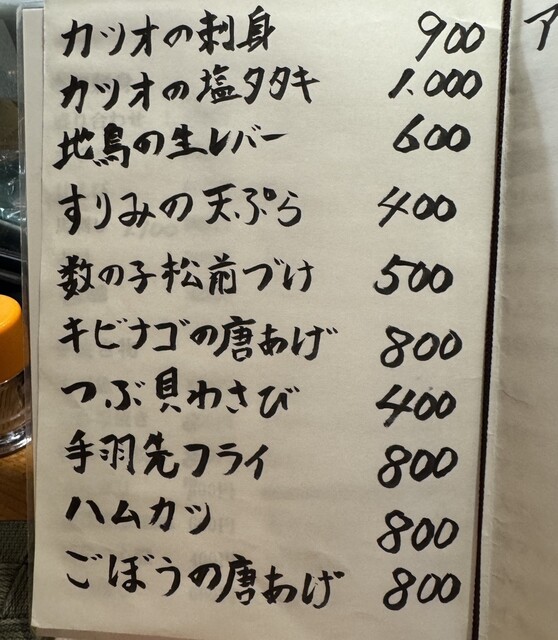 カツオの刺身 900
カツオの塩タタキ 1.000
地鳥の生レバー 600
すりみの天ぷら 400
数の子松前づけ 500
キビナゴの唐あげ 800
つぶ貝わさび 400
手羽先フライ 800
ハムカツ 800
ごぼうの唐あげ 800
ア